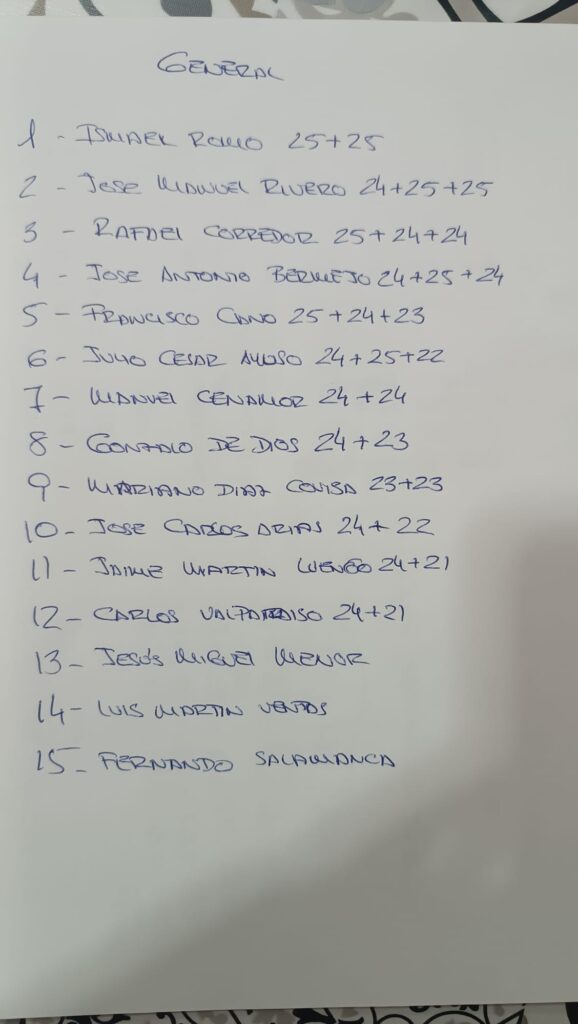 GENERAL
1 - ISMAEL ROMO 25+25
2 - JOSE MANUEL RIVERO 24+25+25
3 - RAFAEL CORREDOR 25+24+24
4 - JOSE ANTONIO BERMEJO 24+25+24
5 - FRANCISCO CANO 25+24+23
6 - JULIO CESAR 24+25+22
7 - MANUEL CENAMOR 24+24
8 - GONZALO DE DIOS 24+23
9 - MARIANO DIAZ COVISA 23+23
10 - JOSE CARLOS ARIAS 24+22
11 - JAIME MARTIN LUENGO 24+21
12 - CARLOS VALPARAISO 24+21
13 - JESÚS MIGUEL MENOR
14 - LUIS MARTIN VENTAS
15 - FERNANDO SALAMANCA